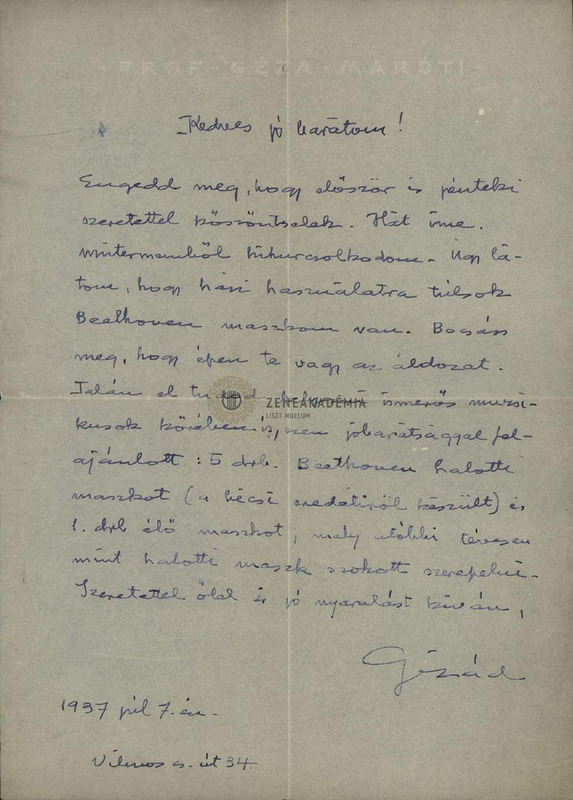 PROF GÉZA MARÓTI
Kedves jó barátom!
Engedd meg, hogy először is pénteki
szeretettel köszöntselek. Hát íme.
műtermemből kihurcolkodom. Úgy lá-
tom, hogy házi használatra túlsok
Beethoven maszkom van. Bocsáss
meg, hogy épen te vagy az áldozat.
Talán el tudod ismerős muzsi-
kusok körében is, ezen jóbarátsággal fel-
ajánlott: 5 drb. Beethoven halotti
maszkot (a bécsi eredetiről készült) és
1. drb élő maszkot, mely utóbbi tévesen
mint halotti maszk szokott szerepelni.
Szeretettel ölel és jó nyaralást kíván,
Gézád
1937 júl 7.-én.
Vilmos cs. út 34.
ZENEAKADÉMIA
LISZT MÚZEUM